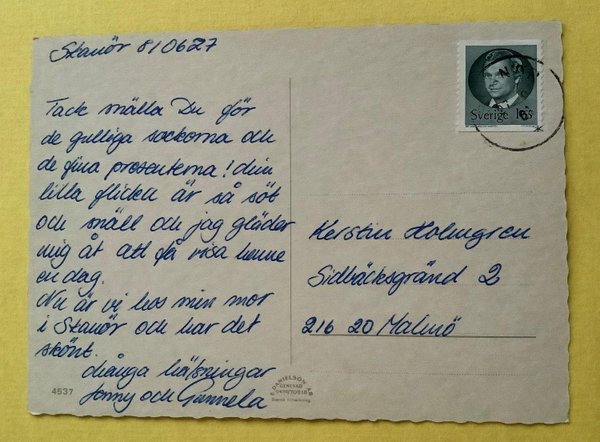 Skanör 810627
Tack snälla Du för
de gulliga sockorna och
de fina presenterna! Min
lilla flicka är så söt
och snäll och jag gläder
mig åt att få visa henne
en dag.
Nu är vi hos min mor
i Skanör och har det
skönt.
Många hälsningar
Jonny och Gunnela
4537
Sverige 165
Kerstin Holmgren
Sidbäcksgränd 2
216 20 Malmö
DANIELSON AB